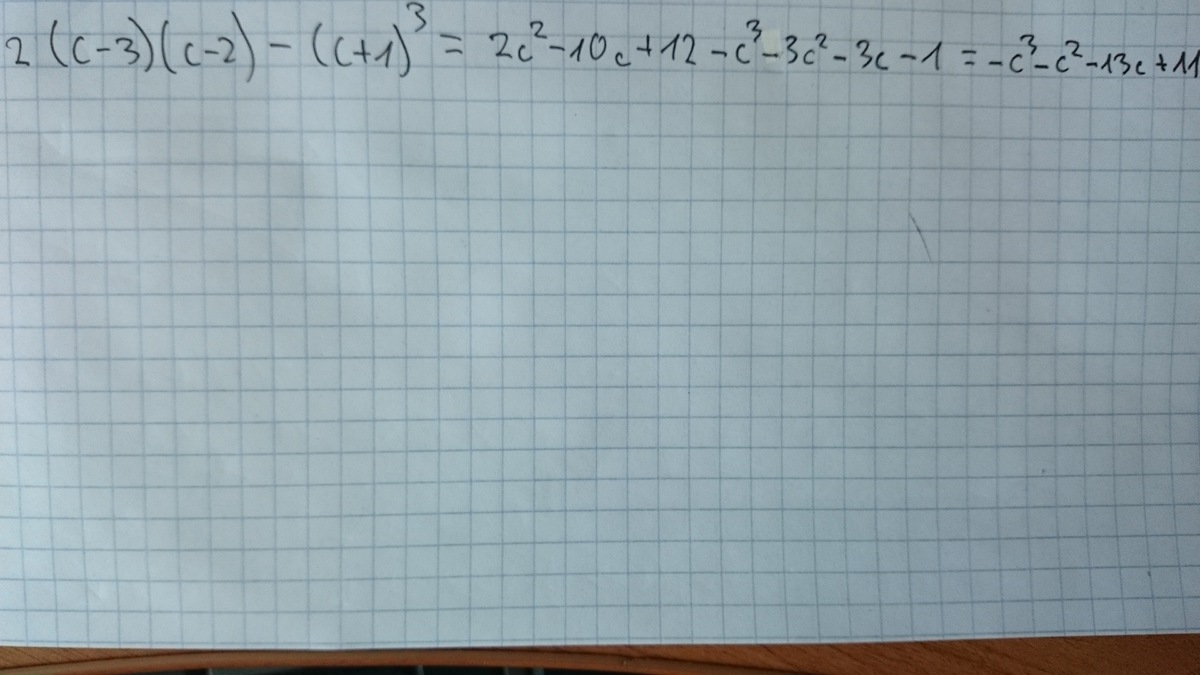 2(c-3)(c-2)-(c+1)³ = 2c²-10c+12-c³-3c²-3c-1 = -c³-c²-13c+11